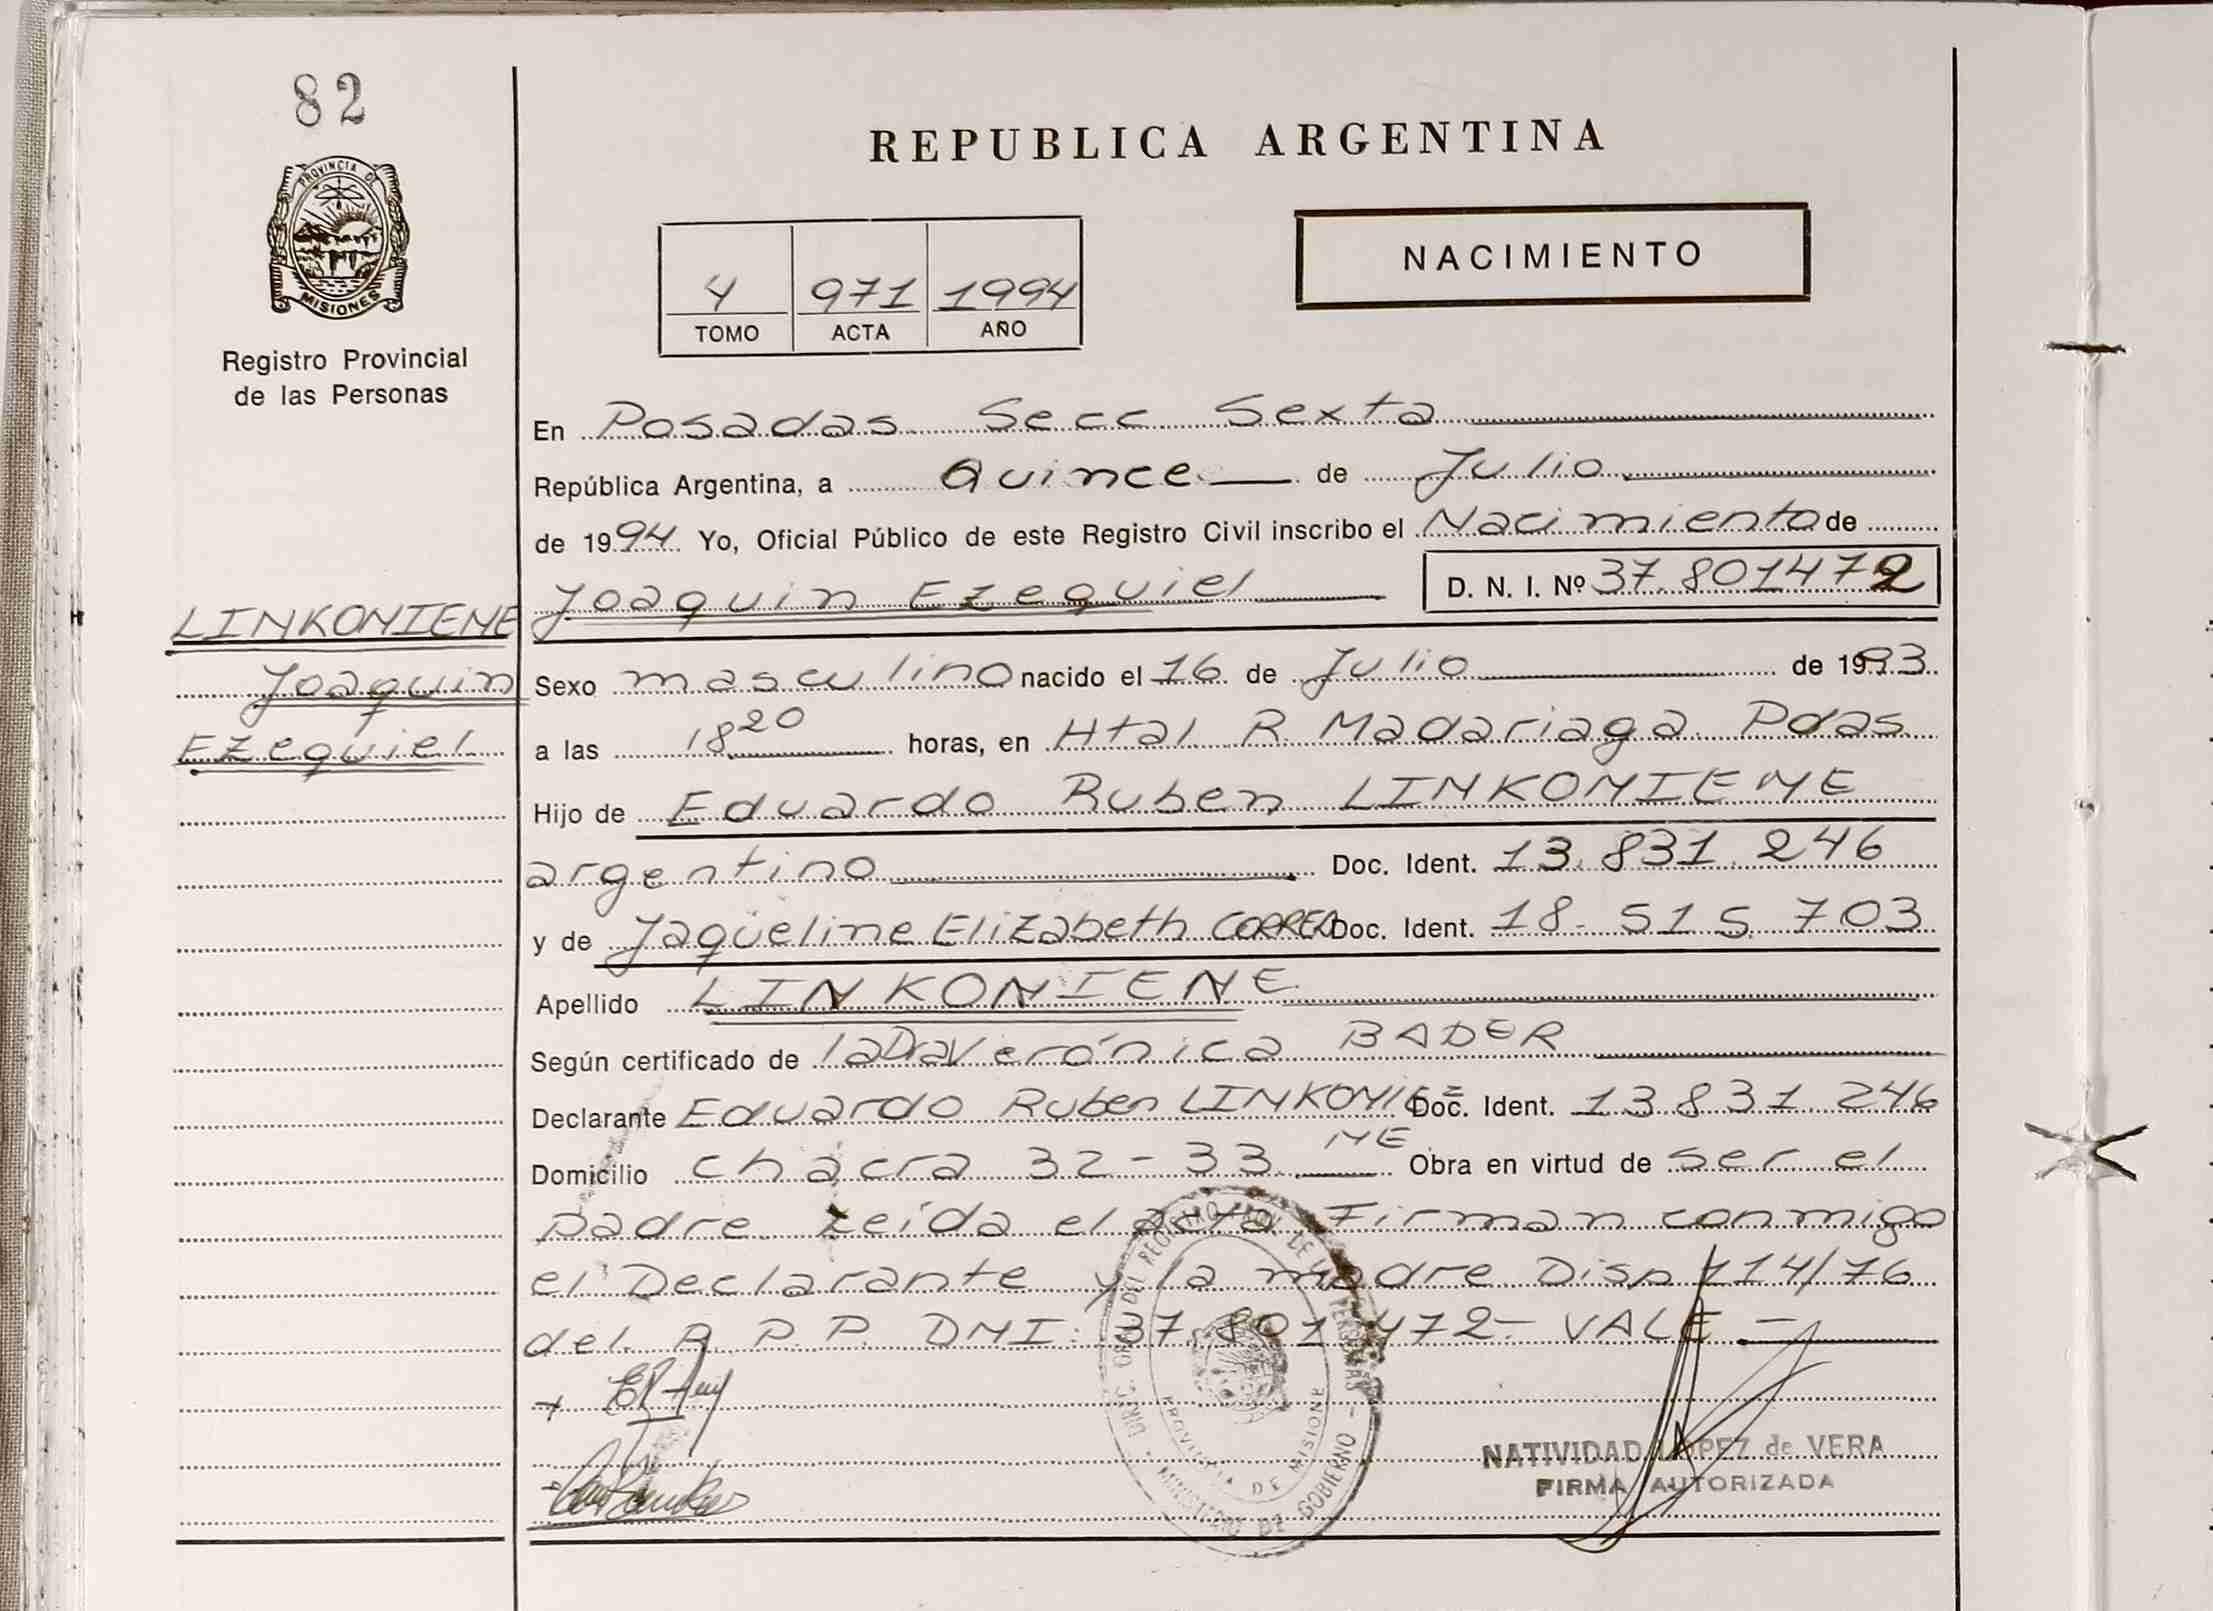 82
PROVINCIA DE
MISIONES
Registro Provincial
de las Personas
REPUBLICA ARGENTINA
4 971 1994
TOMO ACTA AÑO
NACIMIENTO
En Posadas Secc Sexta
República Argentina, a Quince de Julio
de 1994 Yo, Oficial Público de este Registro Civil inscribo el Nacimiento de
Joaquin Ezequiel D. N. I. Nº 37.801472
LINKONIENE
Joaquin
Ezequiel
Sexo masculino nacido el 16 de Julio de 1993
a las 18 20 horas, en Htal R. Madariaga Pdas
Hijo de Eduardo Ruben LINKONIENE
argentino Doc. Ident. 13.831.246
y de Jaqüeline Elizabeth CORREA Doc. Ident. 18.515.703
Apellido LINKONIENE
Según certificado de la Dra Verónica BADER
Declarante Eduardo Ruben LINKONIE Doc. Ident. 13831246
NE
Domicilio chacra 32-33 Obra en virtud de ser el
padre Leída el acta Firman conmigo
el Declarante y la madre Disp 114/76
del R.P.P. DNI: 37.801472- VALE -
DIREC. GRAL. DEL REGISTRO PROV. DE LAS PERSONAS
PROVINCIA DE MISIONES
MINISTERIO DE GOBIERNO
NATIVIDAD LOPEZ de VERA
FIRMA AUTORIZADA